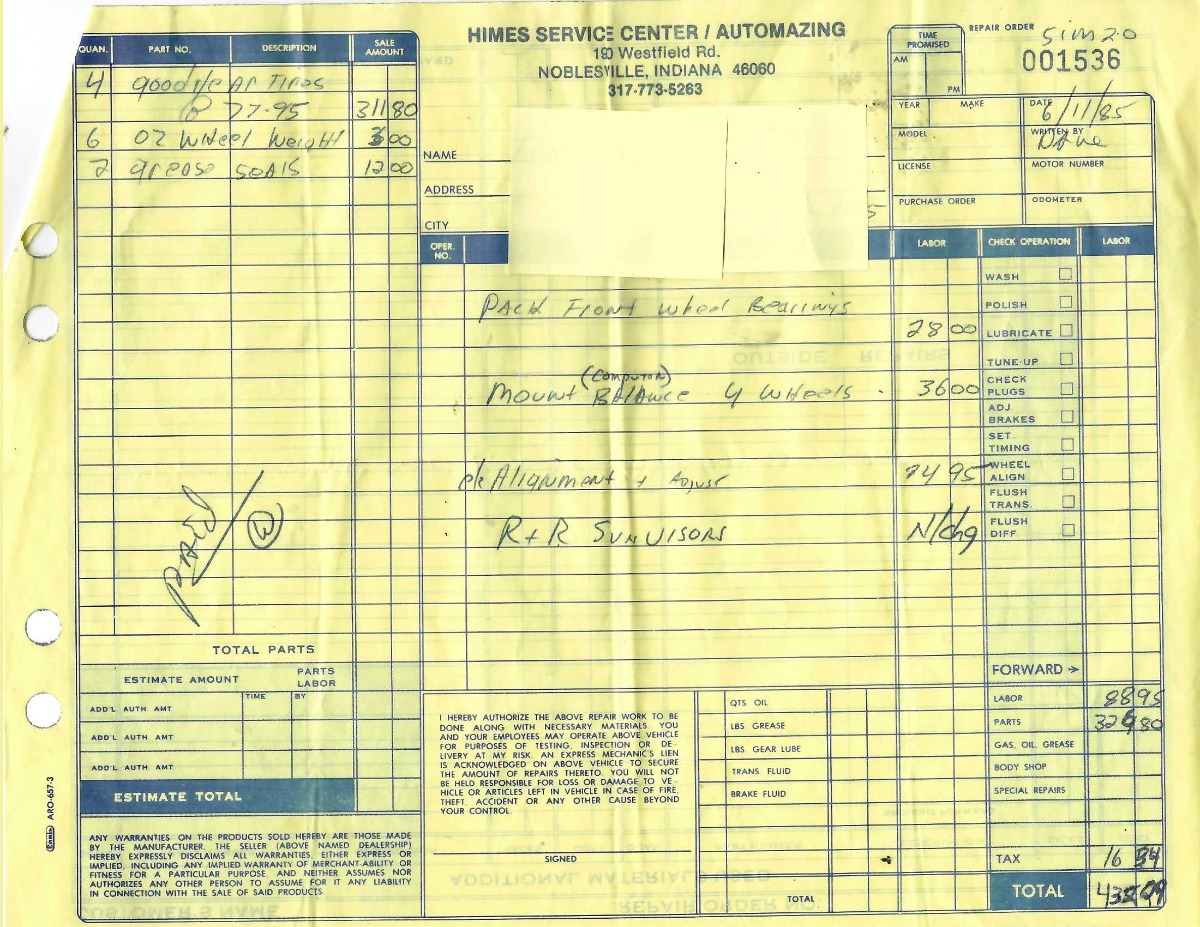 HIMES SERVICE CENTER / AUTOMAZING
190 Westfield Rd.
NOBLESVILLE, INDIANA 46060
317-773-5263
TIME PROMISED
AM
PM
REPAIR ORDER
001536
YEAR MAKE DATE 6/11/85
MODEL WRITTEN BY
LICENSE MOTOR NUMBER
PURCHASE ORDER ODOMETER
NAME
ADDRESS
CITY
QUAN. PART NO. DESCRIPTION SALE AMOUNT
4 goodyear Tires
@ 77.95 311 80
6 oz Wheel Weight 3 00
2 grease seals 12 00
PAid
TOTAL PARTS
ESTIMATE AMOUNT PARTS LABOR
TIME BY
ADD'L AUTH AMT
ADD'L AUTH AMT
ADD'L AUTH AMT
ESTIMATE TOTAL
ANY WARRANTIES ON THE PRODUCTS SOLD HEREBY ARE THOSE MADE
BY THE MANUFACTURER. THE SELLER (ABOVE NAMED DEALERSHIP)
HEREBY EXPRESSLY DISCLAIMS ALL WARRANTIES, EITHER EXPRESS OR
IMPLIED, INCLUDING ANY IMPLIED WARRANTY OF MERCHANT-ABILITY OR
FITNESS FOR A PARTICULAR PURPOSE, AND NEITHER ASSUMES NOR
AUTHORIZES ANY OTHER PERSON TO ASSUME FOR IT ANY LIABILITY
IN CONNECTION WITH THE SALE OF SAID PRODUCTS.
Ennis ARO-657-3
OPER. NO. LABOR CHECK OPERATION LABOR
PACK Front wheel Bearings
28 00
(computor)
Mount Balance 4 wheels 36 00
ck Alignment + Adjust 24 95
R+R SunVisors N/chg
WASH
POLISH
LUBRICATE
TUNE-UP
CHECK PLUGS
ADJ BRAKES
SET TIMING
WHEEL ALIGN
FLUSH TRANS.
FLUSH DIFF
FORWARD
I HEREBY AUTHORIZE THE ABOVE REPAIR WORK TO BE
DONE ALONG WITH NECESSARY MATERIALS. YOU
AND YOUR EMPLOYEES MAY OPERATE ABOVE VEHICLE
FOR PURPOSES OF TESTING, INSPECTION OR DE-
LIVERY AT MY RISK. AN EXPRESS MECHANIC'S LIEN
IS ACKNOWLEDGED ON ABOVE VEHICLE TO SECURE
THE AMOUNT OF REPAIRS THERETO. YOU WILL NOT
BE HELD RESPONSIBLE FOR LOSS OR DAMAGE TO VE-
HICLE OR ARTICLES LEFT IN VEHICLE IN CASE OF FIRE,
THEFT, ACCIDENT OR ANY OTHER CAUSE BEYOND
YOUR CONTROL.
SIGNED
QTS OIL
LBS GREASE
LBS GEAR LUBE
TRANS FLUID
BRAKE FLUID
TOTAL
LABOR 88 95
PARTS 326 80
GAS, OIL, GREASE
BODY SHOP
SPECIAL REPAIRS
TAX 16 34
TOTAL